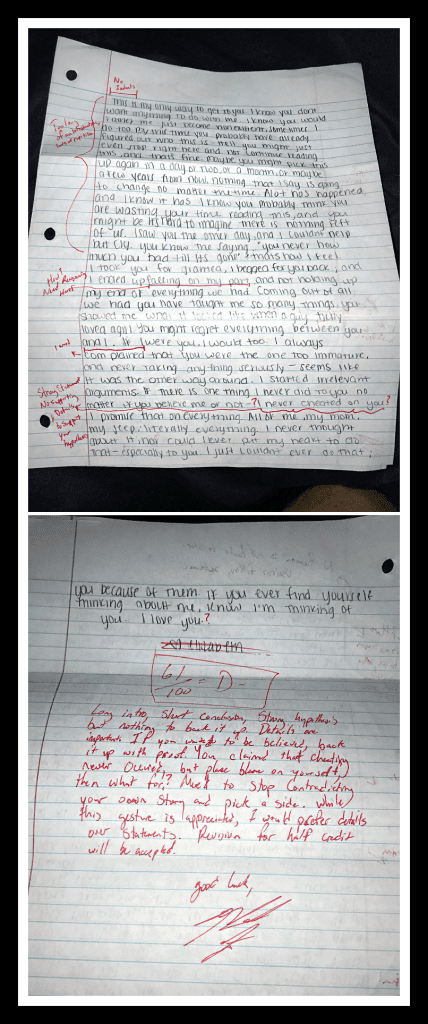 No
Indent
This is my only way to get to you. I know you don't
want anything to do with me. I know you would
rather me just become nonexistent, sometimes I
do too. By this time you probably have already
figured out who this is. Hell you might just
even stop right here and not continue reading
this, and thats fine. Maybe you might pick this
up again in a day or two, or a month, or maybe
a few years from now. Nothing that I say is going
to change no matter the time. Alot has happened
and I know it has. I know you probably think you
are wasting your time reading this, and you
might be. It's hard to imagine there is nothing left
of us. I saw you the other day, and I couldn't help
but cry. You know the saying, "you never how
much you had till its gone" thats how I feel.
I took you for granted, I begged for you back, and
I ended up failing on my part, and not holding up
my end of everything we had. Coming out of all
we had you have taught me so many things, you
showed me what it looked like when a guy fully
loved a girl. You might regret everything between you
and I. If I were you, I would too. I always
complained that you were the one too immature,
and never taking anything serious - seems like
it was the other way around. I started irrelevant
arguments. If there is one thing I never did to you no
matter if you believe me or not -? I never cheated on you?
I promise that on everything. All of me, my mom,
my jeep; literally everything. I never thought
about it, nor could I ever put my heart to do
that - especially to you. I just couldn't ever do that;
Too long
Strong Statement
No Supporting
Details
to Support
your
hypothesis
you because of them. If you ever find yourself
thinking about me, know I'm thinking of
you. I love you.?
61/100 = D-
Long intro, Short Conclusion, Strong hypothesis
but nothing to back it up. Details are
important. If you want to be believed, back
it up with proof. You claimed that cheating
never occurred, but place blame on yourself,
then what for? Need to stop Contradicting
your own Story and pick a side. While
this gesture is appreciated, I would prefer details
over Statements. Revision for half credit
will be accepted.
good luck,